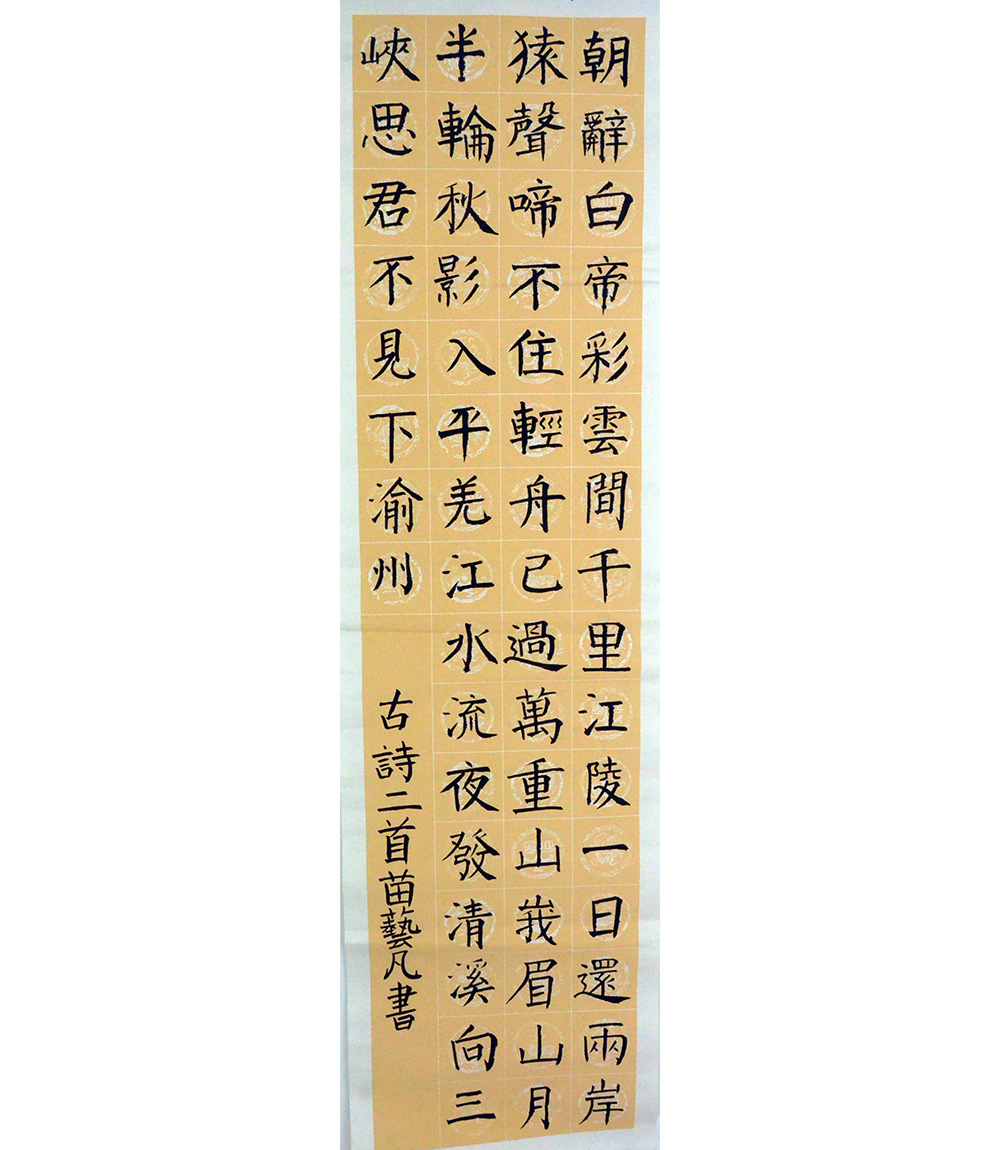 朝辭白帝彩雲間千里江陵一日還兩岸
猿聲啼不住輕舟已過萬重山峩眉山月
半輪秋影入平羌江水流夜發清溪向三
峽思君不見下渝州
古詩二首苗藝凡書